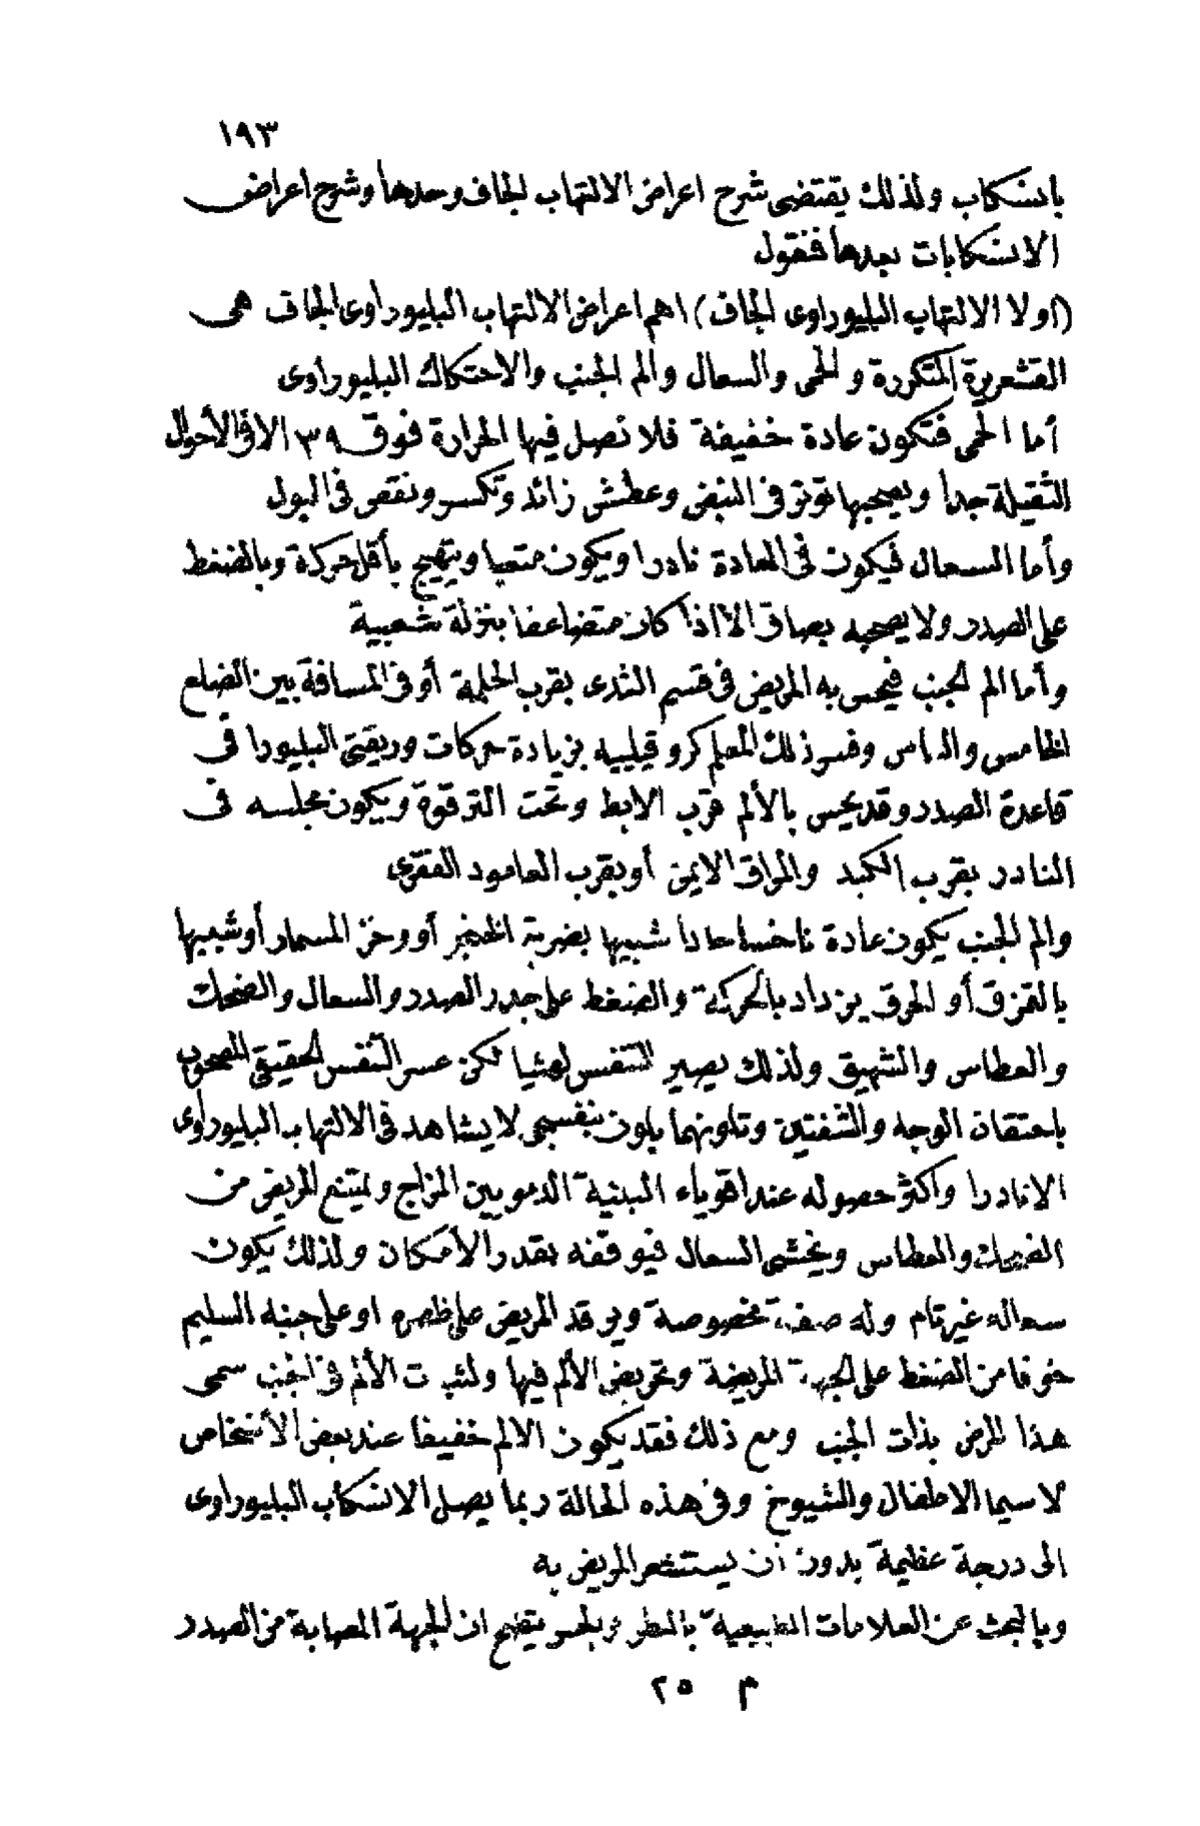 ١٩٣
بانسكاب ولذلك يقتضى شرح اعراض الالتهاب الجاف وحدها وشرح اعراض
الانسكابات بعدها فنقول
(اولا الالتهاب البليوراوى الجاف) اهم اعراض الالتهاب البليوراوى الجاف هى
القشعريرة المتكررة والحمى والسعال والم الجنب والاحتكاك البليوراوى
أما الحمى فتكون عادة خفيفة فلا تصل فيها الحرارة فوق ٣٩ الا فى الأحوال
الثقيلة جدا ويصحبها توتر فى النبض وعطش زائد وتكسر ونقص فى البول
وأما السعال فيكون فى العادة نادرا ويكون متعبا ويتهيج بأقل حركة وبالضغط
على الصدر ولا يصحبه بصاق الا اذا كان متضاعفا بنزلة شعبية
وأما الم الجنب فيحس به المريض فى قسم الثدى بقرب الحلمة أو فى المسافة بين الضلع
الخامس والسادس وفسر ذلك المعلم كروفيلييه بزيادة حركات وريقتى البليورا فى
قاعدة الصدر وقد يحس بالألم قرب الابط وتحت الترقوة ويكون مجلسه فى
النادر بقرب الكبد والمراق الايمن أو بقرب العامود الفقرى
والم الجنب يكون عادة ناخسا حادا شبيها بضربة الخنجر أو وخز المسمار أو شبيها
بالتمزق أو الحرق يزداد بالحركة والضغط على جدر الصدر والسعال والضحك
والعطاس والشهيق ولذلك يصير التنفس لهثيا لكن عسر التنفس الحقيقى المصحوب
باحتقان الوجه والشفتين وتلونهما بلون بنفسجى لا يشاهد فى الالتهاب البليوراوى
الا نادرا وأكثر حصوله عند اقوياء البنية الدمويين المزاج ويمتنع المريض من
الضحك والعطاس ويخشى السعال فيوقفه بقدر الأمكان ولذلك يكون
سعاله غير تام وله صفة مخصوصة ويرقد المريض على ظهره او على جنبه السليم
خوفا من الضغط على الجهة المريضة وتحريض الألم فيها ولثبوت الألم فى الجنب سمى
هذا المرض بذات الجنب ومع ذلك فقد يكون الالم خفيفا عند بعض الأشخاص
لا سيما الاطفال والشيوخ وفى هذه الحالة ربما يصل الانسكاب البليوراوى
الى درجة عظيمة بدون أن يستشعر المريض به
وبالبحث عن العلامات الطبيعية بالنظر وبالجس يتضح ان الجهة المصابة من الصدر
م ٢٥